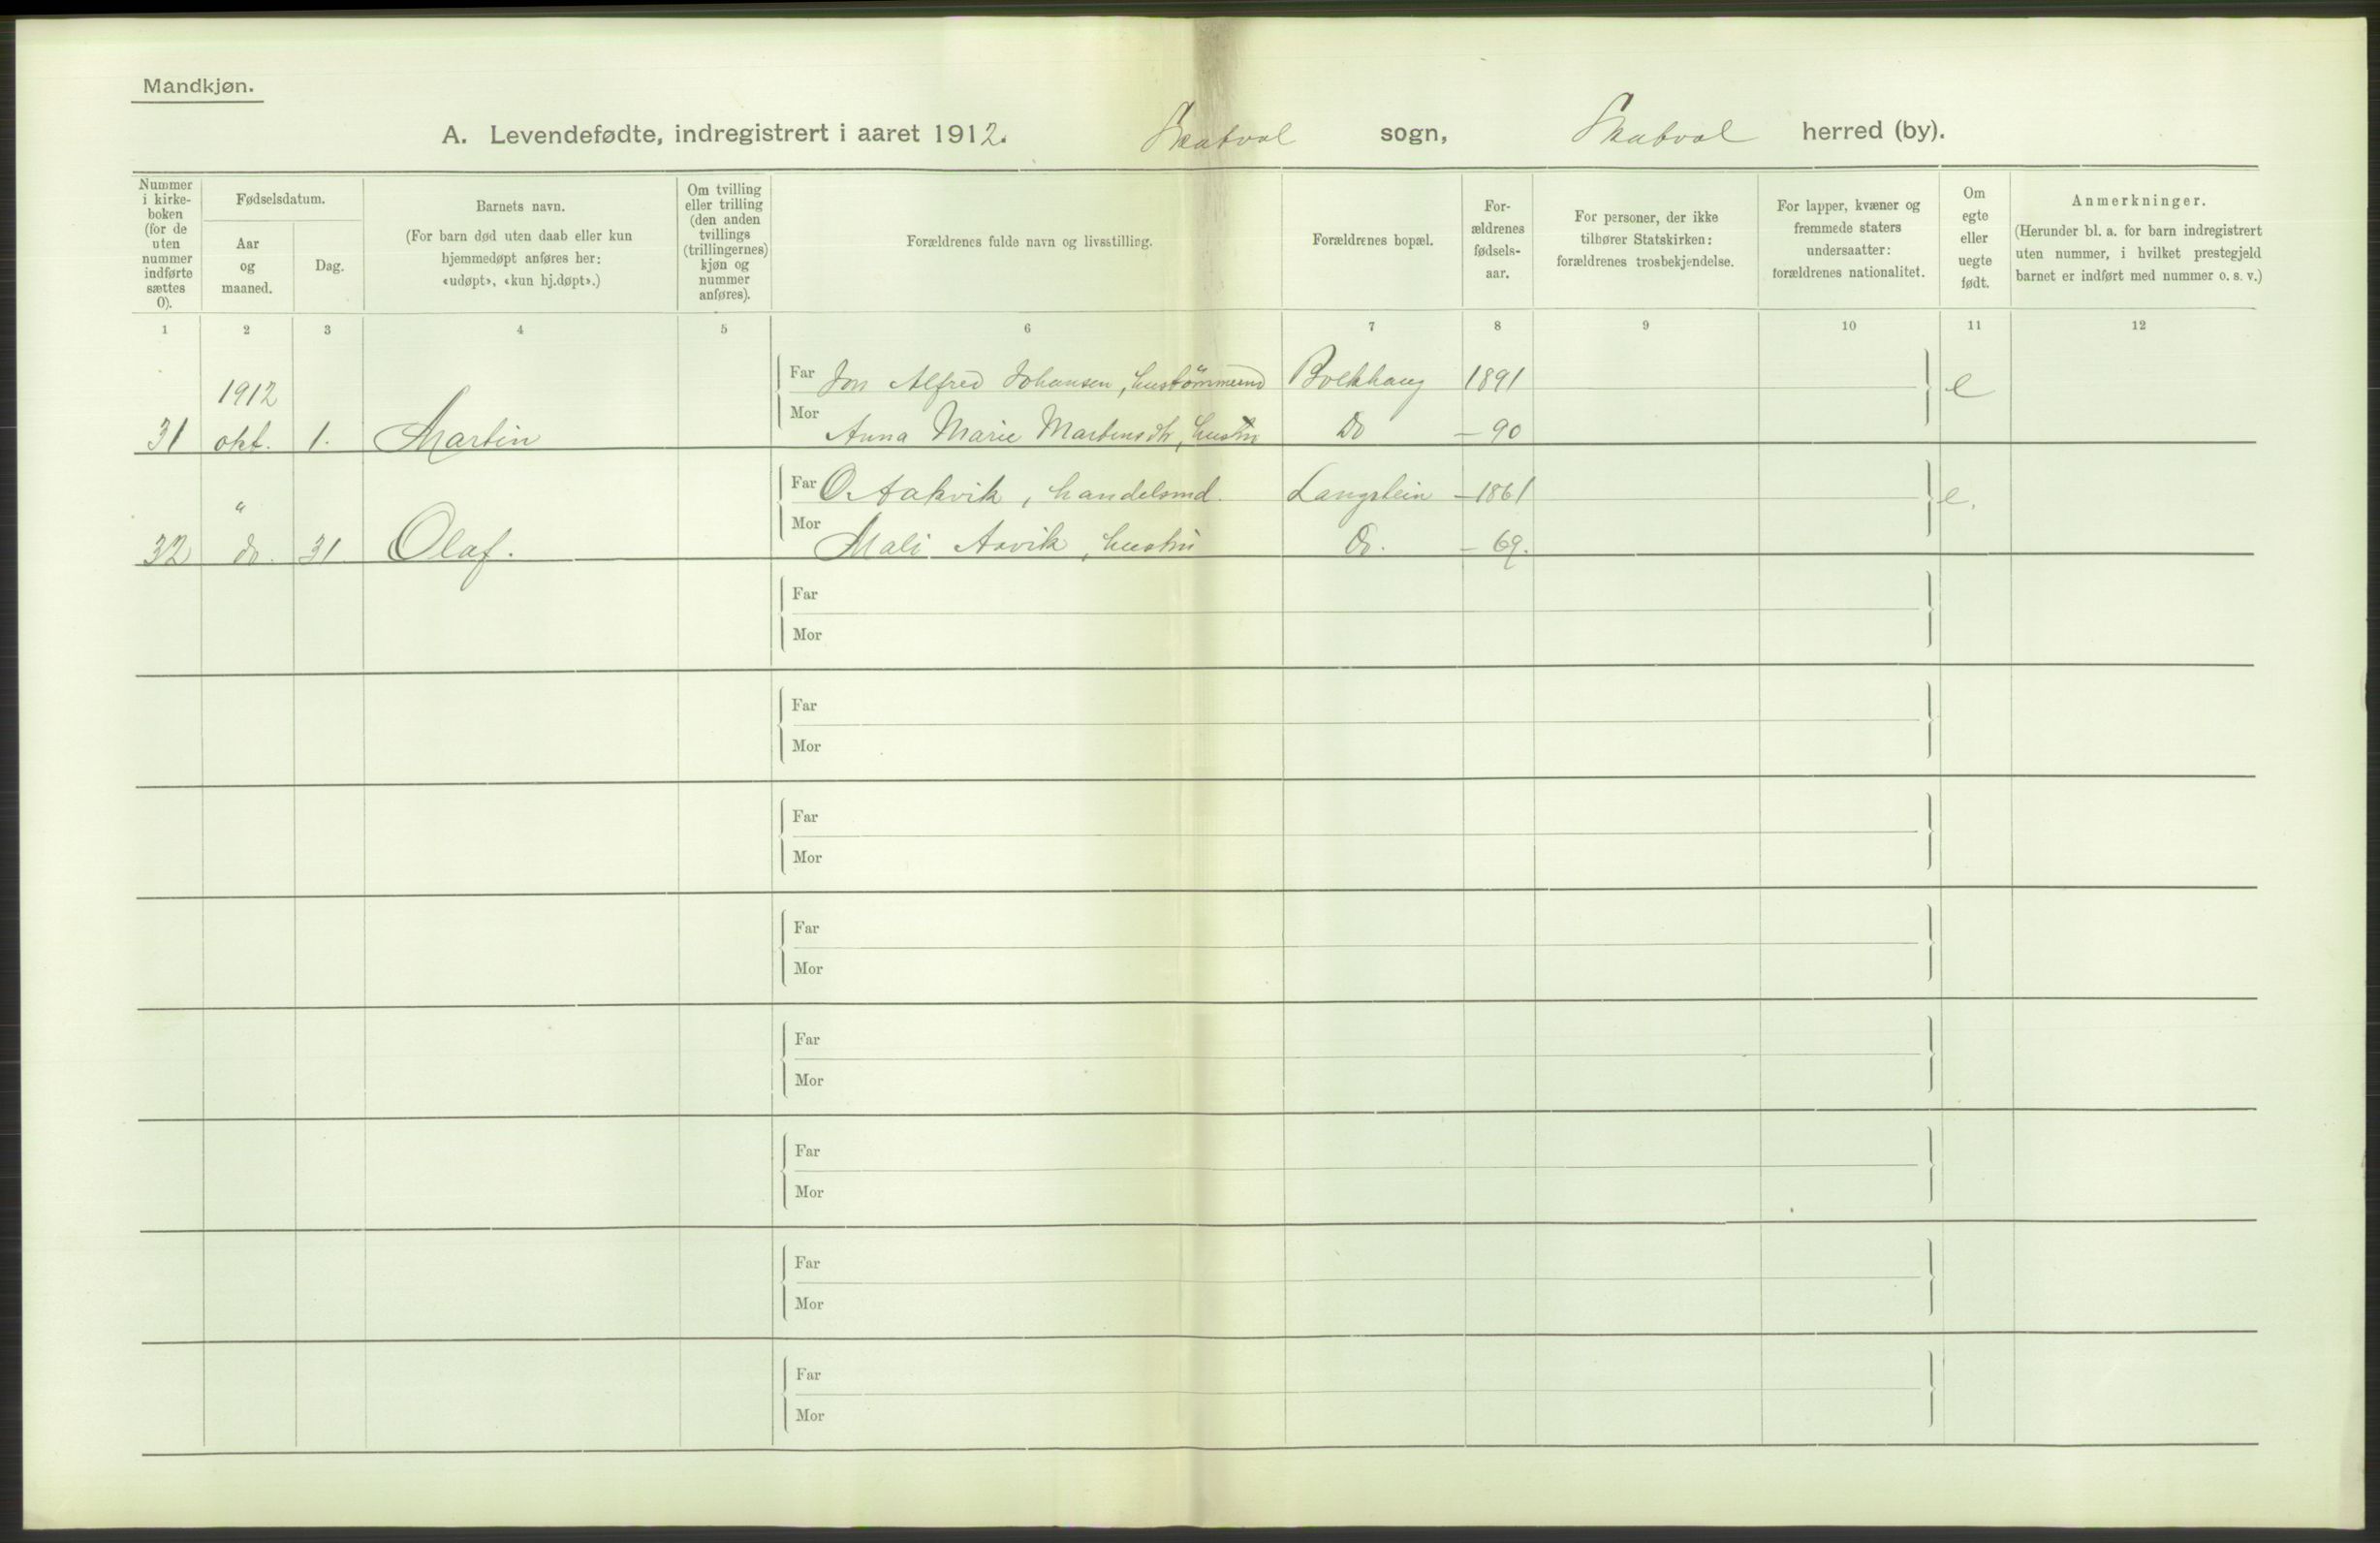 Mandkjøn.
A. Levendefødte, indregistrert i aaret 1912. Skatval sogn, Skatval herred (by).
Nummer i kirke-boken (for de uten nummer indførte sættes 0).
Fødselsdatum.
Aar og maaned.
Dag.
Barnets navn.
(For barn død uten daab eller kun hjemmedøpt anføres her: «udøpt», «kun hj.døpt».)
Om tvilling eller trilling (den anden tvillings (trillingernes) kjøn og nummer anføres).
Forældrenes fulde navn og livsstilling.
Forældrenes bopæl.
For-ældrenes fødsels-aar.
For personer, der ikke tilhører Statskirken: forældrenes trosbekjendelse.
For lapper, kvæner og fremmede staters undersaatter: forældrenes nationalitet.
Om egte eller uegte født.
Anmerkninger.
(Herunder bl. a. for barn indregistrert uten nummer, i hvilket prestegjeld barnet er indført med nummer o. s. v.)
1 2 3 4 5 6 7 8 9 10 11 12
1912 Far Jon Alfred Johansen, hustømmermd 1891 e
31 okt. 1. Martin Mor Anna Marie Martensdtr, hustru Do – 90
" Far O. Aakvik, handelsmd. Langstein – 1861 e.
32 do. 31 Olaf. Mor Mali Aavik, hustru Do. – 69.
Far
Mor
Far
Mor
Far
Mor
Far
Mor
Far
Mor
Far
Mor
Far
Mor
Far
Mor